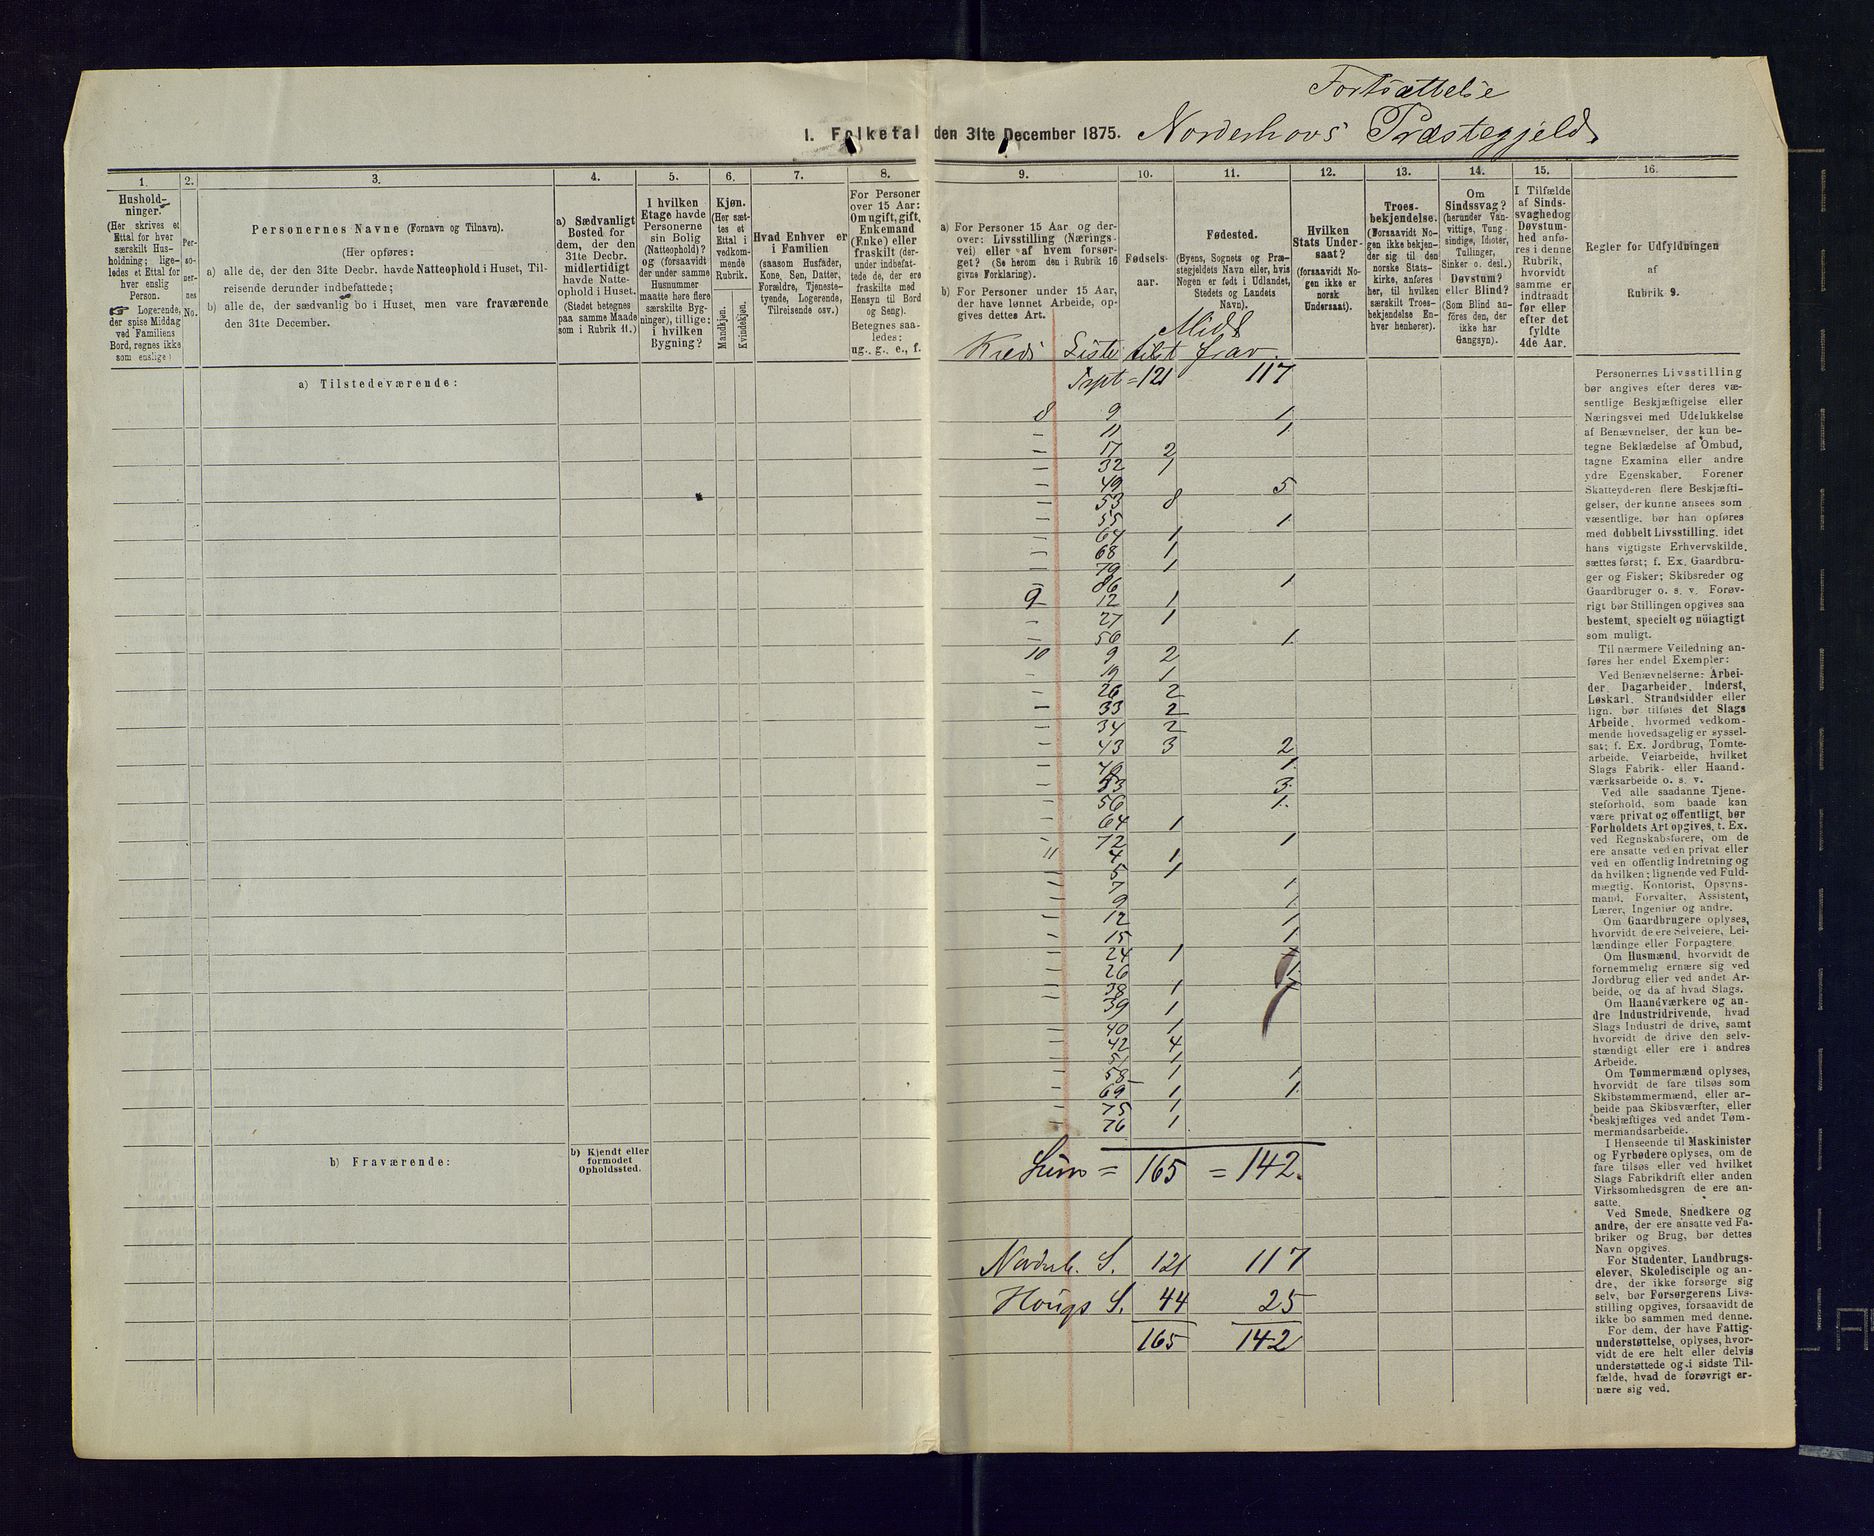 Fortsættelse
I. Folketal den 31te December 1875. Norderhovs Præstegjeld.
1.
Hushold-
ninger.
(Her skrives et
Ettal for hver
særskilt Hus-
holdning; lige-
ledes et Ettal for
hver enslig
Person.
☞ Logerende,
der spise Middag
ved Familiens
Bord, regnes ikke
som enslige)
2.
Per-
so-
ner-
nes
No.
3.
Personernes Navne (Fornavn og Tilnavn).
(Her opføres:
a) alle de, der den 31te Decbr. havde Natteophold i Huset, Til-
reisende derunder indbefattede;
b) alle de, der sædvanlig bo i Huset, men vare fraværende
den 31te December.
4.
a) Sædvanligt
Bosted for
dem, der den
31te Decbr.
midlertidigt
havde Natte-
ophold i Huset.
(Stedet betegnes
paa samme Maade
som i Rubrik 11.)
5.
I hvilken
Etage havde
Personerne
sin Bolig
(Natteophold)?
og (forsaavidt
der under samme
Husnummer
maatte høre flere
særskilte Byg-
ninger), tillige:
i hvilken
Bygning?
6.
Kjøn.
(Her sæt-
tes et
Ettal i
vedkom-
mende
Rubrik.
Mandkjøn.
Kvindekjøn.
7.
Hvad Enhver er
i Familien
(saasom Husfader,
Kone, Søn, Datter,
Forældre, Tjeneste-
tyende, Logerende,
Tilreisende osv.)
8.
For Personer
over 15 Aar:
Om ugift, gift,
Enkemand
(Enke) eller
fraskilt (der-
under indbefat-
tede de, der ere
fraskilte med
Hensyn til Bord
og Seng).
Betegnes saa-
ledes:
ug., g., e., f.
9.
a) For Personer 15 Aar og der-
over: Livsstilling (Nærings-
vei) eller af hvem forsør-
get? (Se herom den i Rubrik 16
givne Forklaring).
b) For Personer under 15 Aar,
der have lønnet Arbeide, op-
gives dettes Art.
10.
Fødsels-
aar.
11.
Fødested.
(Byens, Sognets og Præ-
stegjeldets Navn eller, hvis
Nogen er født i Udlandet,
Stedets og Landets
Navn).
12.
Hvilken
Stats Under-
saat?
(forsaavidt No-
gen ikke er
norsk
Undersaat).
13.
Troes-
bekjendelse.
(Forsaavidt No-
gen ikke bekjen-
der sig til den
norske Stats-
kirke, anføres
her, til hvilken
særskilt Troes-
bekjendelse En-
hver henhører).
14.
Om
Sindssvag?
(herunder Van-
vittige, Tung-
sindige, Idioter,
Tullinger,
Sinker o. desl.)
Døvstum?
eller Blind?
(Som Blind an-
føres den, der
ikke har
Gangsyn).
15.
I Tilfælde
af Sinds-
svaghed og
Døvstum-
hed anfø-
res i denne
Rubrik,
hvorvidt
samme er
indtraadt
før eller
efter det
fyldte
4de Aar.
16.
Regler for Udfyldningen
af
Rubrik 9.
a) Tilstedeværende:
Midl
Kreds Liste tilst frav.
Trspt = 121 117
8 9 1
" 11 1
" 17 2
" 32 1
" 49 5
" 53 8
" 55 1
" 64 1
" 68 1
" 79 1
" 86 1
9 12 1
" 27 1
" 56 1.
10 9 2
" 19 1
" 26 2
" 33 2
" 34 2
" 43 3 2
" 1.
" 53 3.
" 56 1.
" 64 1
" 72 1
11 4 1
" 5 1
" 7 1
" 9 1
" 12 1
" 15 1
" 24 1
" 26 1
" 38 1
" 39 1
" 40 1
" 42 4
" 51 1
" 58 1 1
" 69 1 1.
" 75 1
" 76 1
Sum = 165 = 142.
b) Fraværende:
b) Kjendt eller
formodet
Opholdssted.
Norderh. S. 121 117
Hougs S. 44 25
165 142
Personernes Livsstilling
bør angives efter deres væ-
sentlige Beskjæftigelse eller
Næringsvei med Udelukkelse
af Benævnelser, der kun be-
tegne Beklædelse af Ombud,
tagne Examina eller andre
ydre Egenskaber. Forener
Skatteyderen flere Beskjæfti-
gelser, der kunne ansees som
væsentlige, bør han opføres
med dobbelt Livsstilling, idet
hans vigtigste Erhvervskilde
sættes først; f. Ex. Gaardbru-
ger og Fisker; Skibsreder og
Gaardbruger o. s. v. Forøv-
rigt bør Stillingen opgives saa
bestemt, specielt og nøiagtigt
som muligt.
Til nærmere Veiledning an-
føres her endel Exempler:
Ved Benævnelserne: Arbei-
der, Dagarbeider, Inderst,
Løskarl, Strandsidder eller
lign. bør tilføies det Slags
Arbeide, hvormed vedkom-
mende hovedsagelig er syssel-
sat; f. Ex. Jordbrug, Tomte-
arbeide, Veiarbeide, hvilket
Slags Fabrik- eller Haand-
værksarbeide o. s. v.
Ved alle saadanne Tjene-
steforhold, som baade kan
være privat og offentligt, bør
Forholdets Art opgives, t. Ex.
ved Regnskabsførere, om de
ere ansatte ved en privat eller
ved en offentlig Indretning og
da hvilken; lignende ved Fuld-
mægtig, Kontorist, Opsyns-
mand, Forvalter, Assistent,
Lærer, Ingeniør og andre.
Om Gaardbrugere oplyses,
hvorvidt de ere Selveiere, Lei-
lændinge eller Forpagtere.
Om Husmænd, hvorvidt de
fornemmelig ernære sig ved
Jordbrug eller ved andet Ar-
beide, og da af hvad Slags.
Om Haandværkere og an-
dre Industridrivende, hvad
Slags Industri de drive, samt
hvorvidt de drive den selv-
stændigt eller ere i andres
Arbeide.
Om Tømmermænd oplyses,
hvorvidt de fare tilsøs som
Skibstømmermænd, eller ar-
beide paa Skibsværfter, eller
beskjæftiges ved andet Tøm-
mermandsarbeide.
I Henseende til Maskinister
og Fyrbødere oplyses, om de
fare tilsøs eller ved hvilket
Slags Fabrikdrift eller anden
Virksomhedsgren de ere an-
satte.
Ved Smede, Snedkere og
andre, der ere ansatte ved Fa-
briker og Brug, bør dettes
Navn opgives.
For Studenter, Landbrugs-
elever, Skoledisciple og an-
dre, der ikke forsørge sig
selv, bør Forsørgerens Livs-
stilling opgives, forsaavidt de
ikke bo sammen med denne.
For dem, der have Fattig-
understøttelse, oplyses, hvor-
vidt de ere helt eller delvis
understøttede og i sidste Til-
fælde, hvad de forøvrigt er-
nære sig ved.